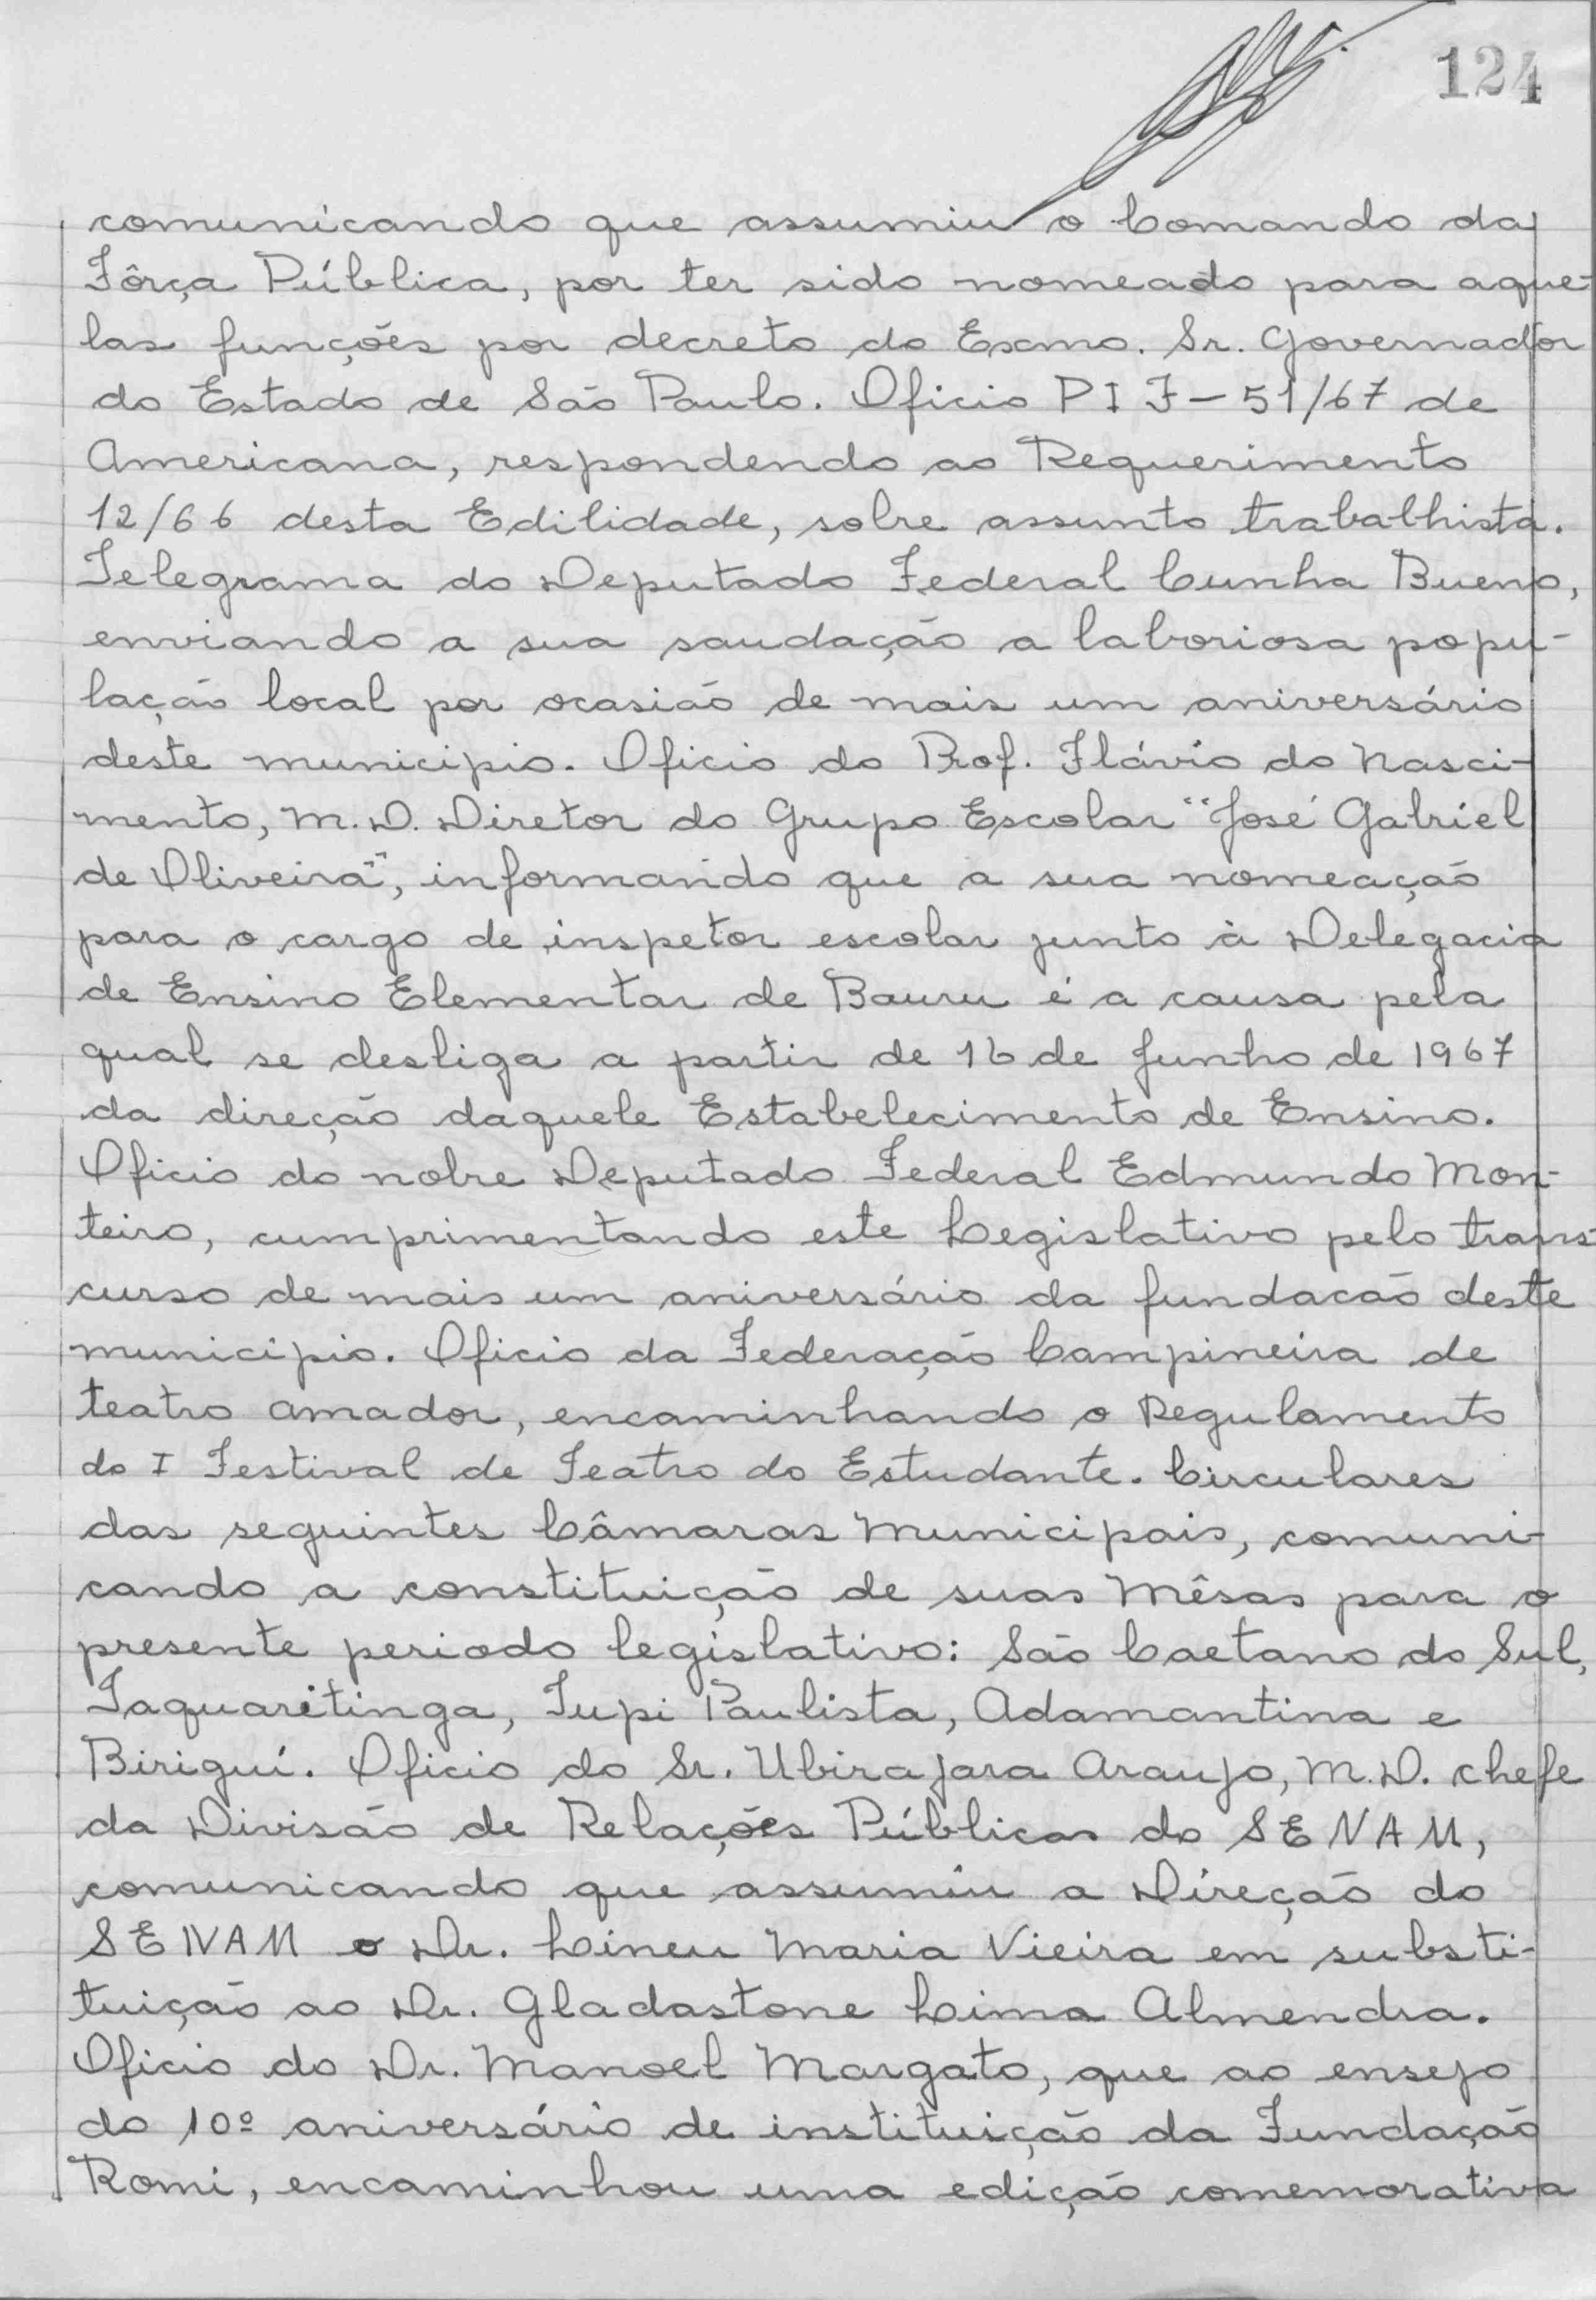 124
comunicando que assumiu o Comando da
Fôrça Pública, por ter sido nomeado para aque-
las funções por decreto do Exmo. Sr. Governador
do Estado de São Paulo. Oficio PIF-51/67 de
Americana, respondendo ao Requerimento
12/66 desta Edilidade, sobre assunto trabalhista.
Telegrama do Deputado Federal Cunha Bueno,
enviando a sua saudação a laboriosa popu-
lação local por ocasião de mais um aniversário
deste municipio. Oficio do Prof. Flávio do Nasci-
mento, M.D. Diretor do Grupo Escolar "José Gabriel
de Oliveira", informando que a sua nomeação
para o cargo de inspetor escolar junto à Delegacia
de Ensino Elementar de Bauru é a causa pela
qual se desliga a partir de 16 de Junho de 1967
da direção daquele Estabelecimento de Ensino.
Oficio do nobre Deputado Federal Edmundo Mon-
teiro, cumprimentando este Legislativo pelo trans-
curso de mais um aniversário da fundacão deste
municipio. Oficio da Federação Campineira de
teatro amador, encaminhando o Regulamento
do I Festival de Teatro do Estudante. Circulares
das seguintes Câmaras Municipais, comuni-
cando a constituição de suas Mêsas para o
presente periodo legislativo: São Caetano do Sul,
Taquaritinga, Tupi Paulista, Adamantina e
Biriguí. Oficio do Sr. Ubirajara Araujo, M.D. chefe
da Divisão de Relações Públicas do SENAM,
comunicando que assumiu a Direção do
SENAM o Dr. Lineu Maria Vieira em substi-
tuição ao Dr. Gladastone Lima Almendra.
Oficio do Dr. Manoel Margato, que ao ensejo
do 10º aniversário de instituição da Fundação
Romi, encaminhou uma edição comemorativa